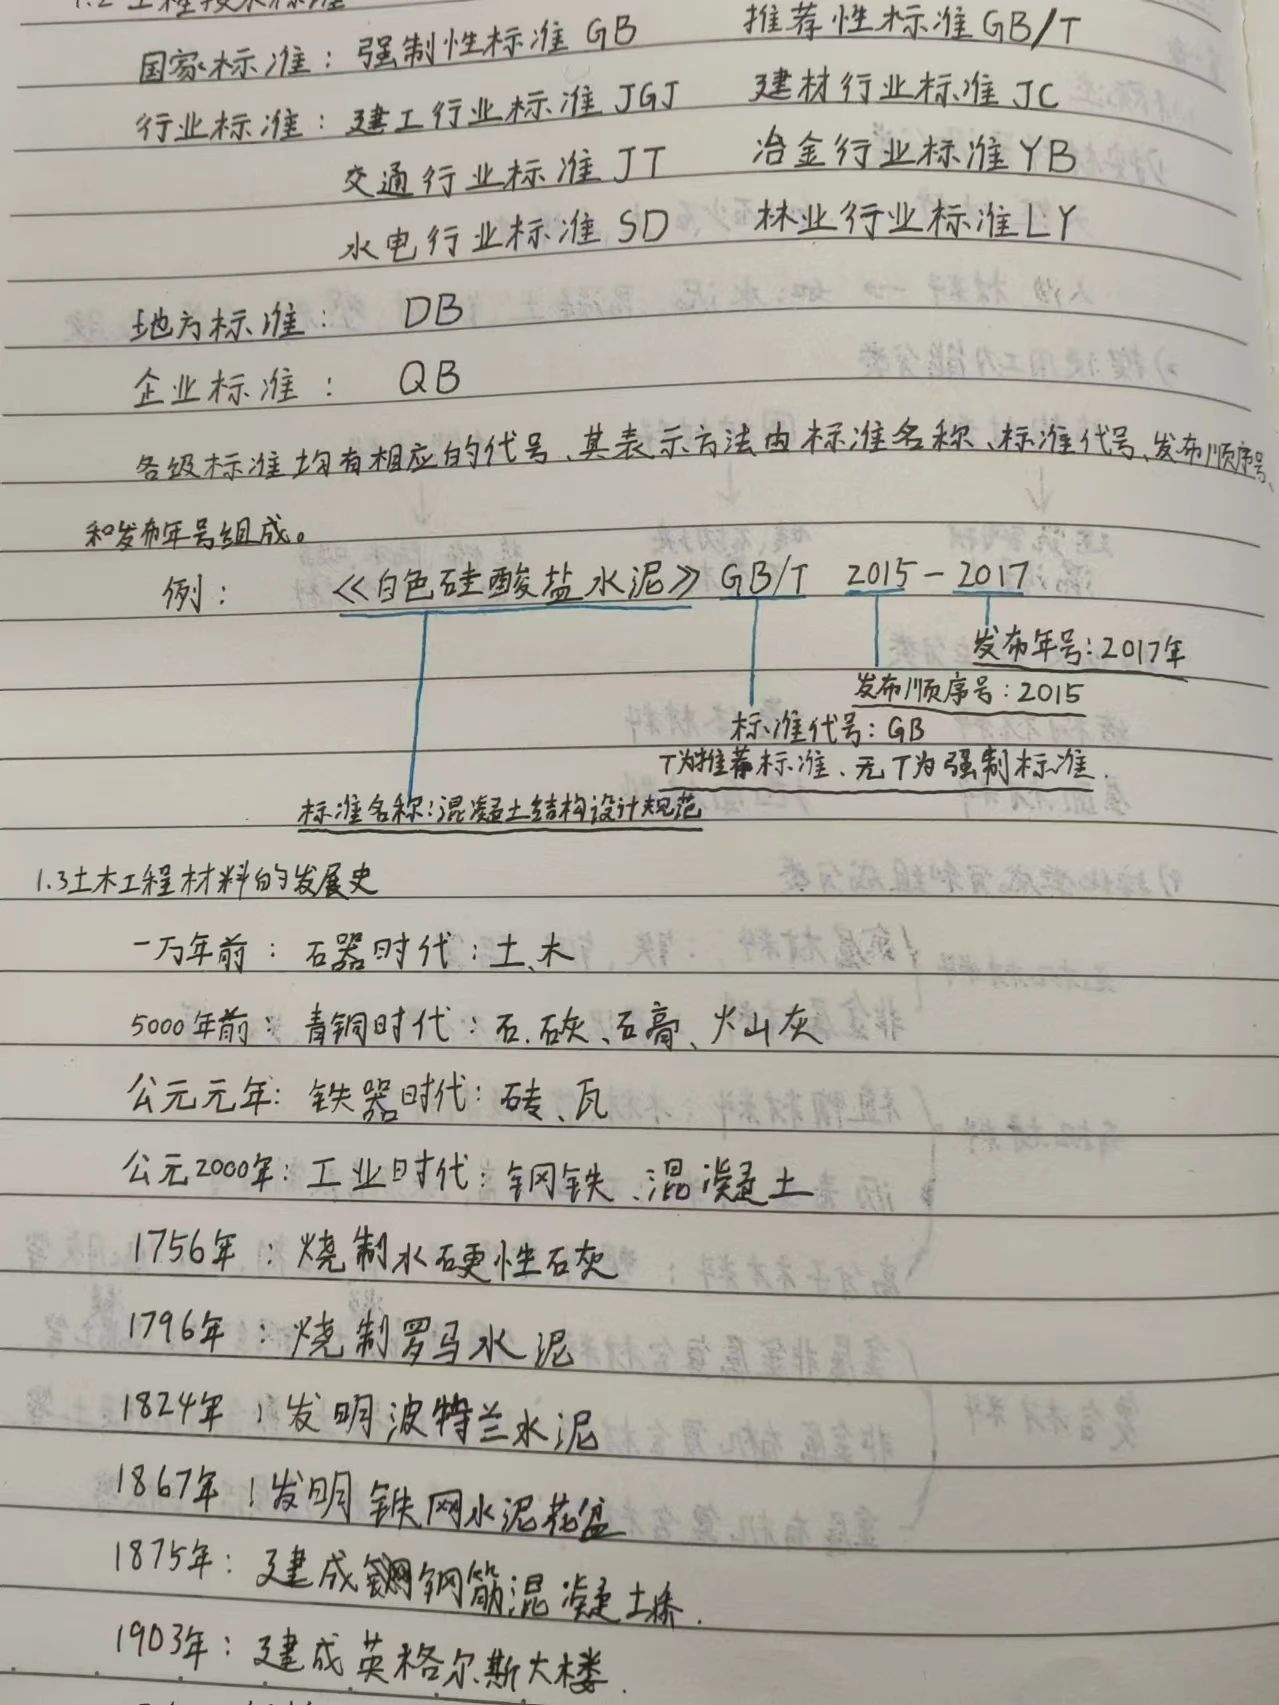 1.2 工程技术标准
国家标准：强制性标准 GB 推荐性标准 GB/T
行业标准：建工行业标准 JGJ 建材行业标准 JC
交通行业标准 JT 冶金行业标准 YB
水电行业标准 SD 林业行业标准 LY
地方标准： DB
企业标准： QB
各级标准均有相应的代号、其表示方法由标准名称、标准代号、发布顺序号、
和发布年号组成。
例： 《白色硅酸盐水泥》 GB/T 2015-2017
发布年号：2017年
发布顺序号：2015
标准代号：GB
T为推荐标准、无T为强制标准.
标准名称：混凝土结构设计规范
1.3土木工程材料的发展史
一万年前：石器时代：土、木
5000年前：青铜时代：石、石灰、石膏、火山灰
公元元年：铁器时代：砖、瓦
公元2000年：工业时代：钢铁、混凝土
1756年：烧制水硬性石灰
1796年：烧制罗马水泥
1824年：发明波特兰水泥
1867年：发明铁网水泥花盆
1875年：建成钢筋混凝土桥.
1903年：建成英格尔斯大楼.